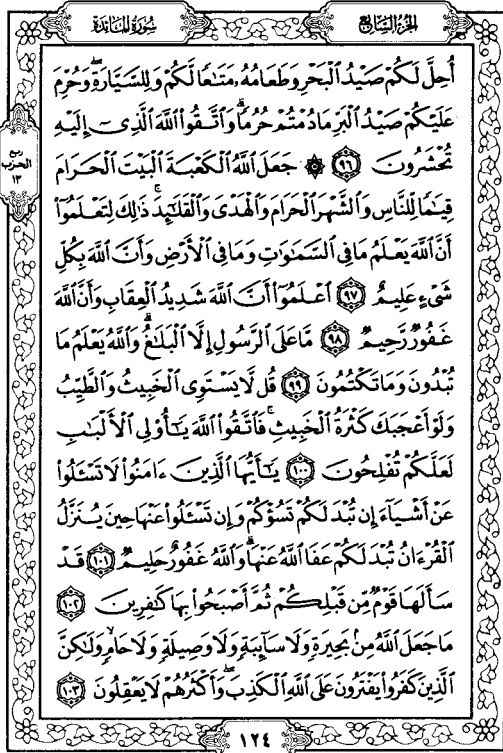 الجزء السابع
سورة المائدة
أُحِلَّ لَكُمْ صَيْدُ ٱلْبَحْرِ وَطَعَامُهُۥ مَتَـٰعًا لَّكُمْ وَلِلسَّيَّارَةِ ۖ وَحُرِّمَ
عَلَيْكُمْ صَيْدُ ٱلْبَرِّ مَا دُمْتُمْ حُرُمًا ۗ وَٱتَّقُوا۟ ٱللَّهَ ٱلَّذِىٓ إِلَيْهِ
تُحْشَرُونَ ٩٦ ۞ جَعَلَ ٱللَّهُ ٱلْكَعْبَةَ ٱلْبَيْتَ ٱلْحَرَامَ
قِيَـٰمًا لِّلنَّاسِ وَٱلشَّهْرَ ٱلْحَرَامَ وَٱلْهَدْىَ وَٱلْقَلَـٰٓئِدَ ۚ ذَٰلِكَ لِتَعْلَمُوٓا۟
أَنَّ ٱللَّهَ يَعْلَمُ مَا فِى ٱلسَّمَـٰوَٰتِ وَمَا فِى ٱلْأَرْضِ وَأَنَّ ٱللَّهَ بِكُلِّ
شَىْءٍ عَلِيمٌ ٩٧ ٱعْلَمُوٓا۟ أَنَّ ٱللَّهَ شَدِيدُ ٱلْعِقَابِ وَأَنَّ ٱللَّهَ
غَفُورٌ رَّحِيمٌ ٩٨ مَّا عَلَى ٱلرَّسُولِ إِلَّا ٱلْبَلَـٰغُ ۗ وَٱللَّهُ يَعْلَمُ مَا
تُبْدُونَ وَمَا تَكْتُمُونَ ٩٩ قُل لَّا يَسْتَوِى ٱلْخَبِيثُ وَٱلطَّيِّبُ
وَلَوْ أَعْجَبَكَ كَثْرَةُ ٱلْخَبِيثِ ۚ فَٱتَّقُوا۟ ٱللَّهَ يَـٰٓأُو۟لِى ٱلْأَلْبَـٰبِ
لَعَلَّكُمْ تُفْلِحُونَ ١٠٠ يَـٰٓأَيُّهَا ٱلَّذِينَ ءَامَنُوا۟ لَا تَسْـَٔلُوا۟
عَنْ أَشْيَآءَ إِن تُبْدَ لَكُمْ تَسُؤْكُمْ وَإِن تَسْـَٔلُوا۟ عَنْهَا حِينَ يُنَزَّلُ
ٱلْقُرْءَانُ تُبْدَ لَكُمْ عَفَا ٱللَّهُ عَنْهَا ۗ وَٱللَّهُ غَفُورٌ حَلِيمٌ ١٠١ قَدْ
سَأَلَهَا قَوْمٌ مِّن قَبْلِكُمْ ثُمَّ أَصْبَحُوا۟ بِهَا كَـٰفِرِينَ ١٠٢
مَا جَعَلَ ٱللَّهُ مِنۢ بَحِيرَةٍ وَلَا سَآئِبَةٍ وَلَا وَصِيلَةٍ وَلَا حَامٍ ۙ وَلَـٰكِنَّ
ٱلَّذِينَ كَفَرُوا۟ يَفْتَرُونَ عَلَى ٱللَّهِ ٱلْكَذِبَ ۖ وَأَكْثَرُهُمْ لَا يَعْقِلُونَ ١٠٣
ربع
الحزب
١٣
١٢٤